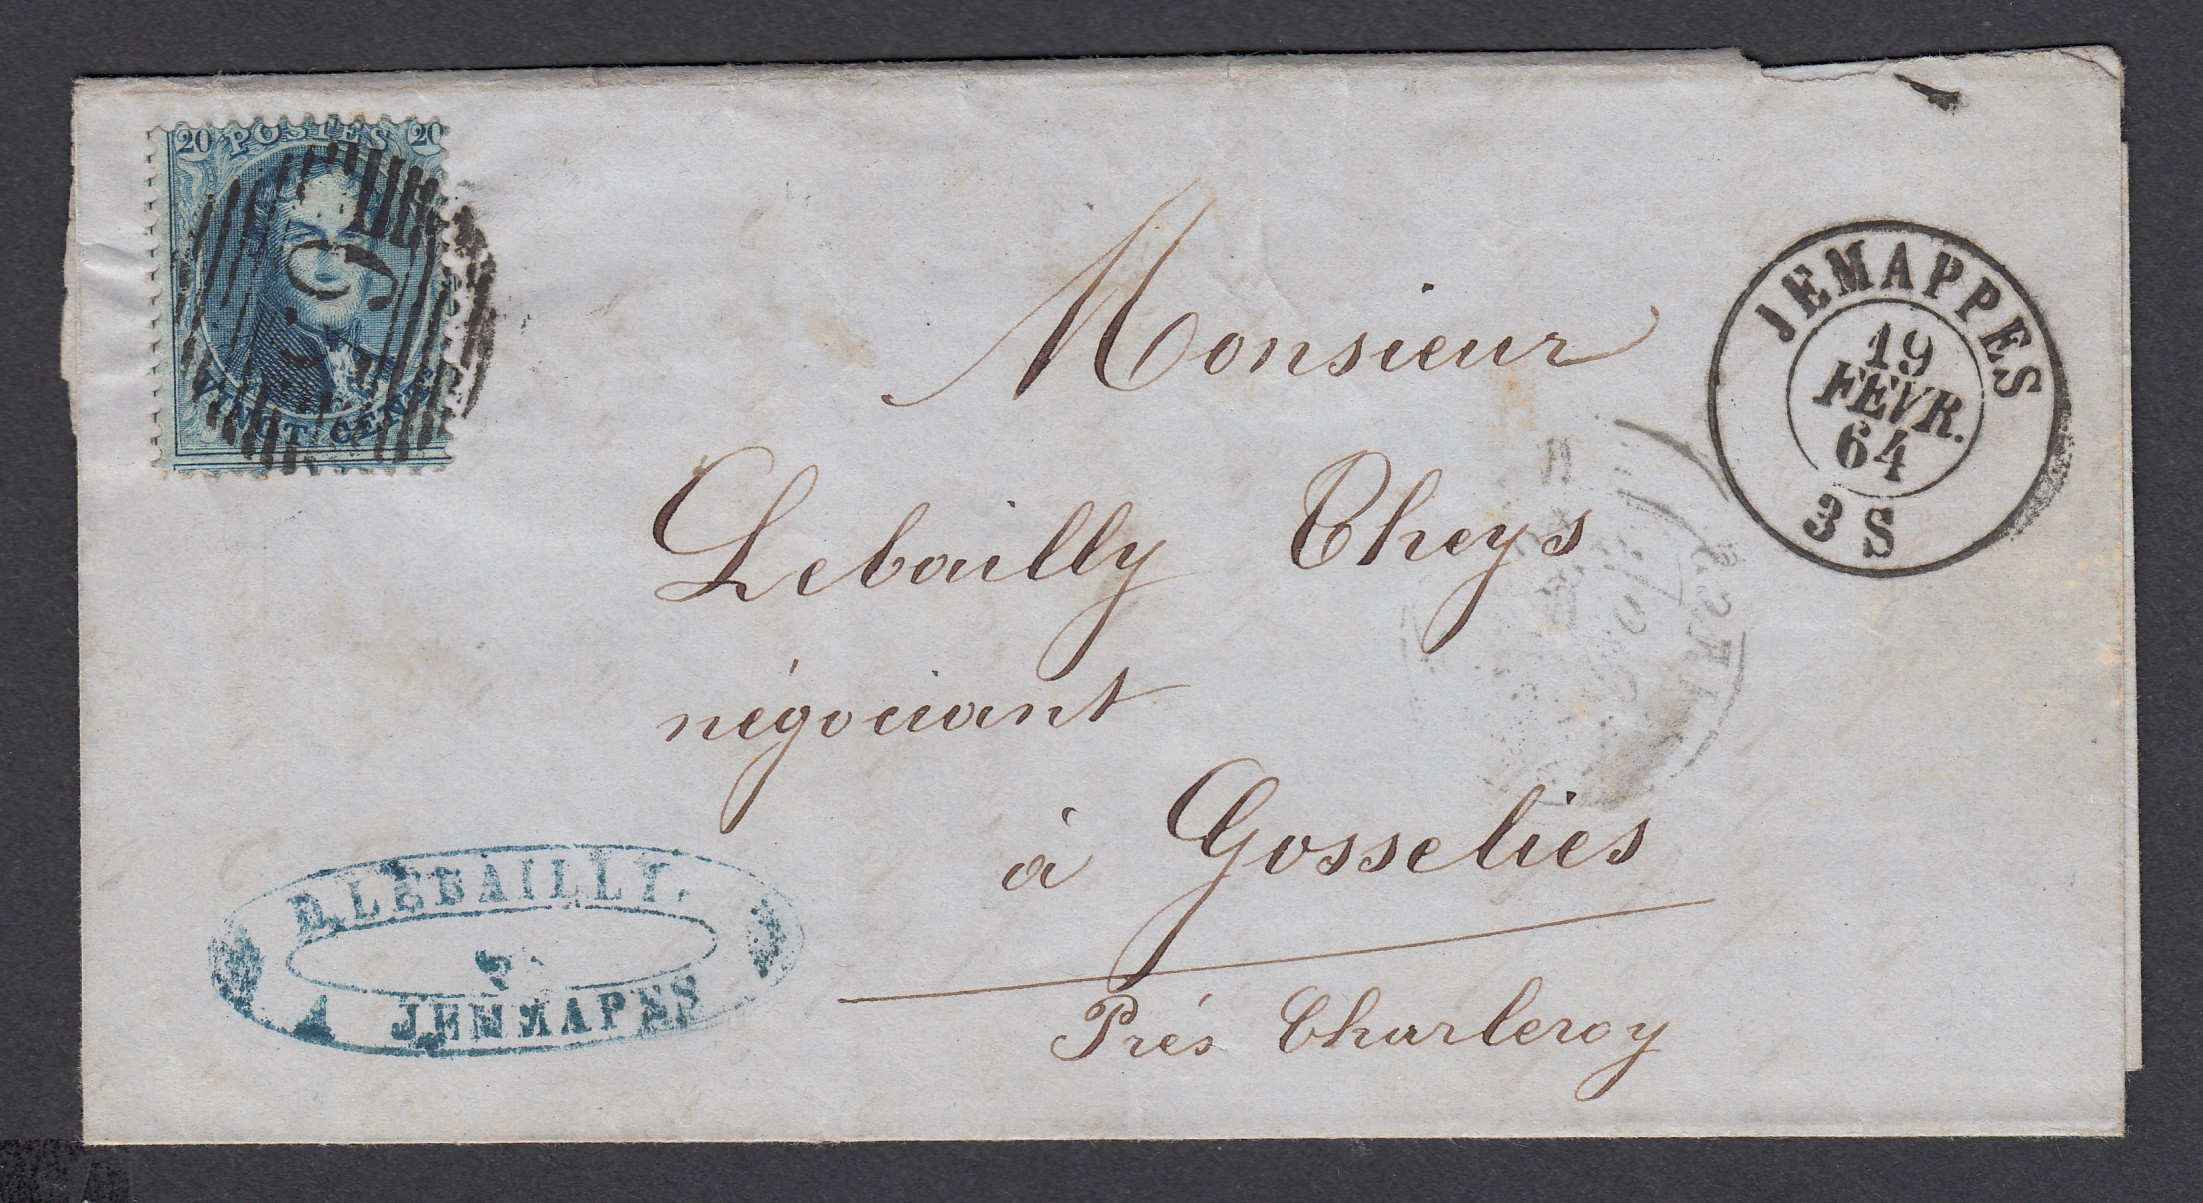 20 POSTES 20
VINGT CENT
JEMAPPES
19
FEVR.
64
3 S
Monsieur
Lebailly Theys
négociant
à Gosselies
Prés Charleroy
D. LEBAILLY.
A JEMMAPES